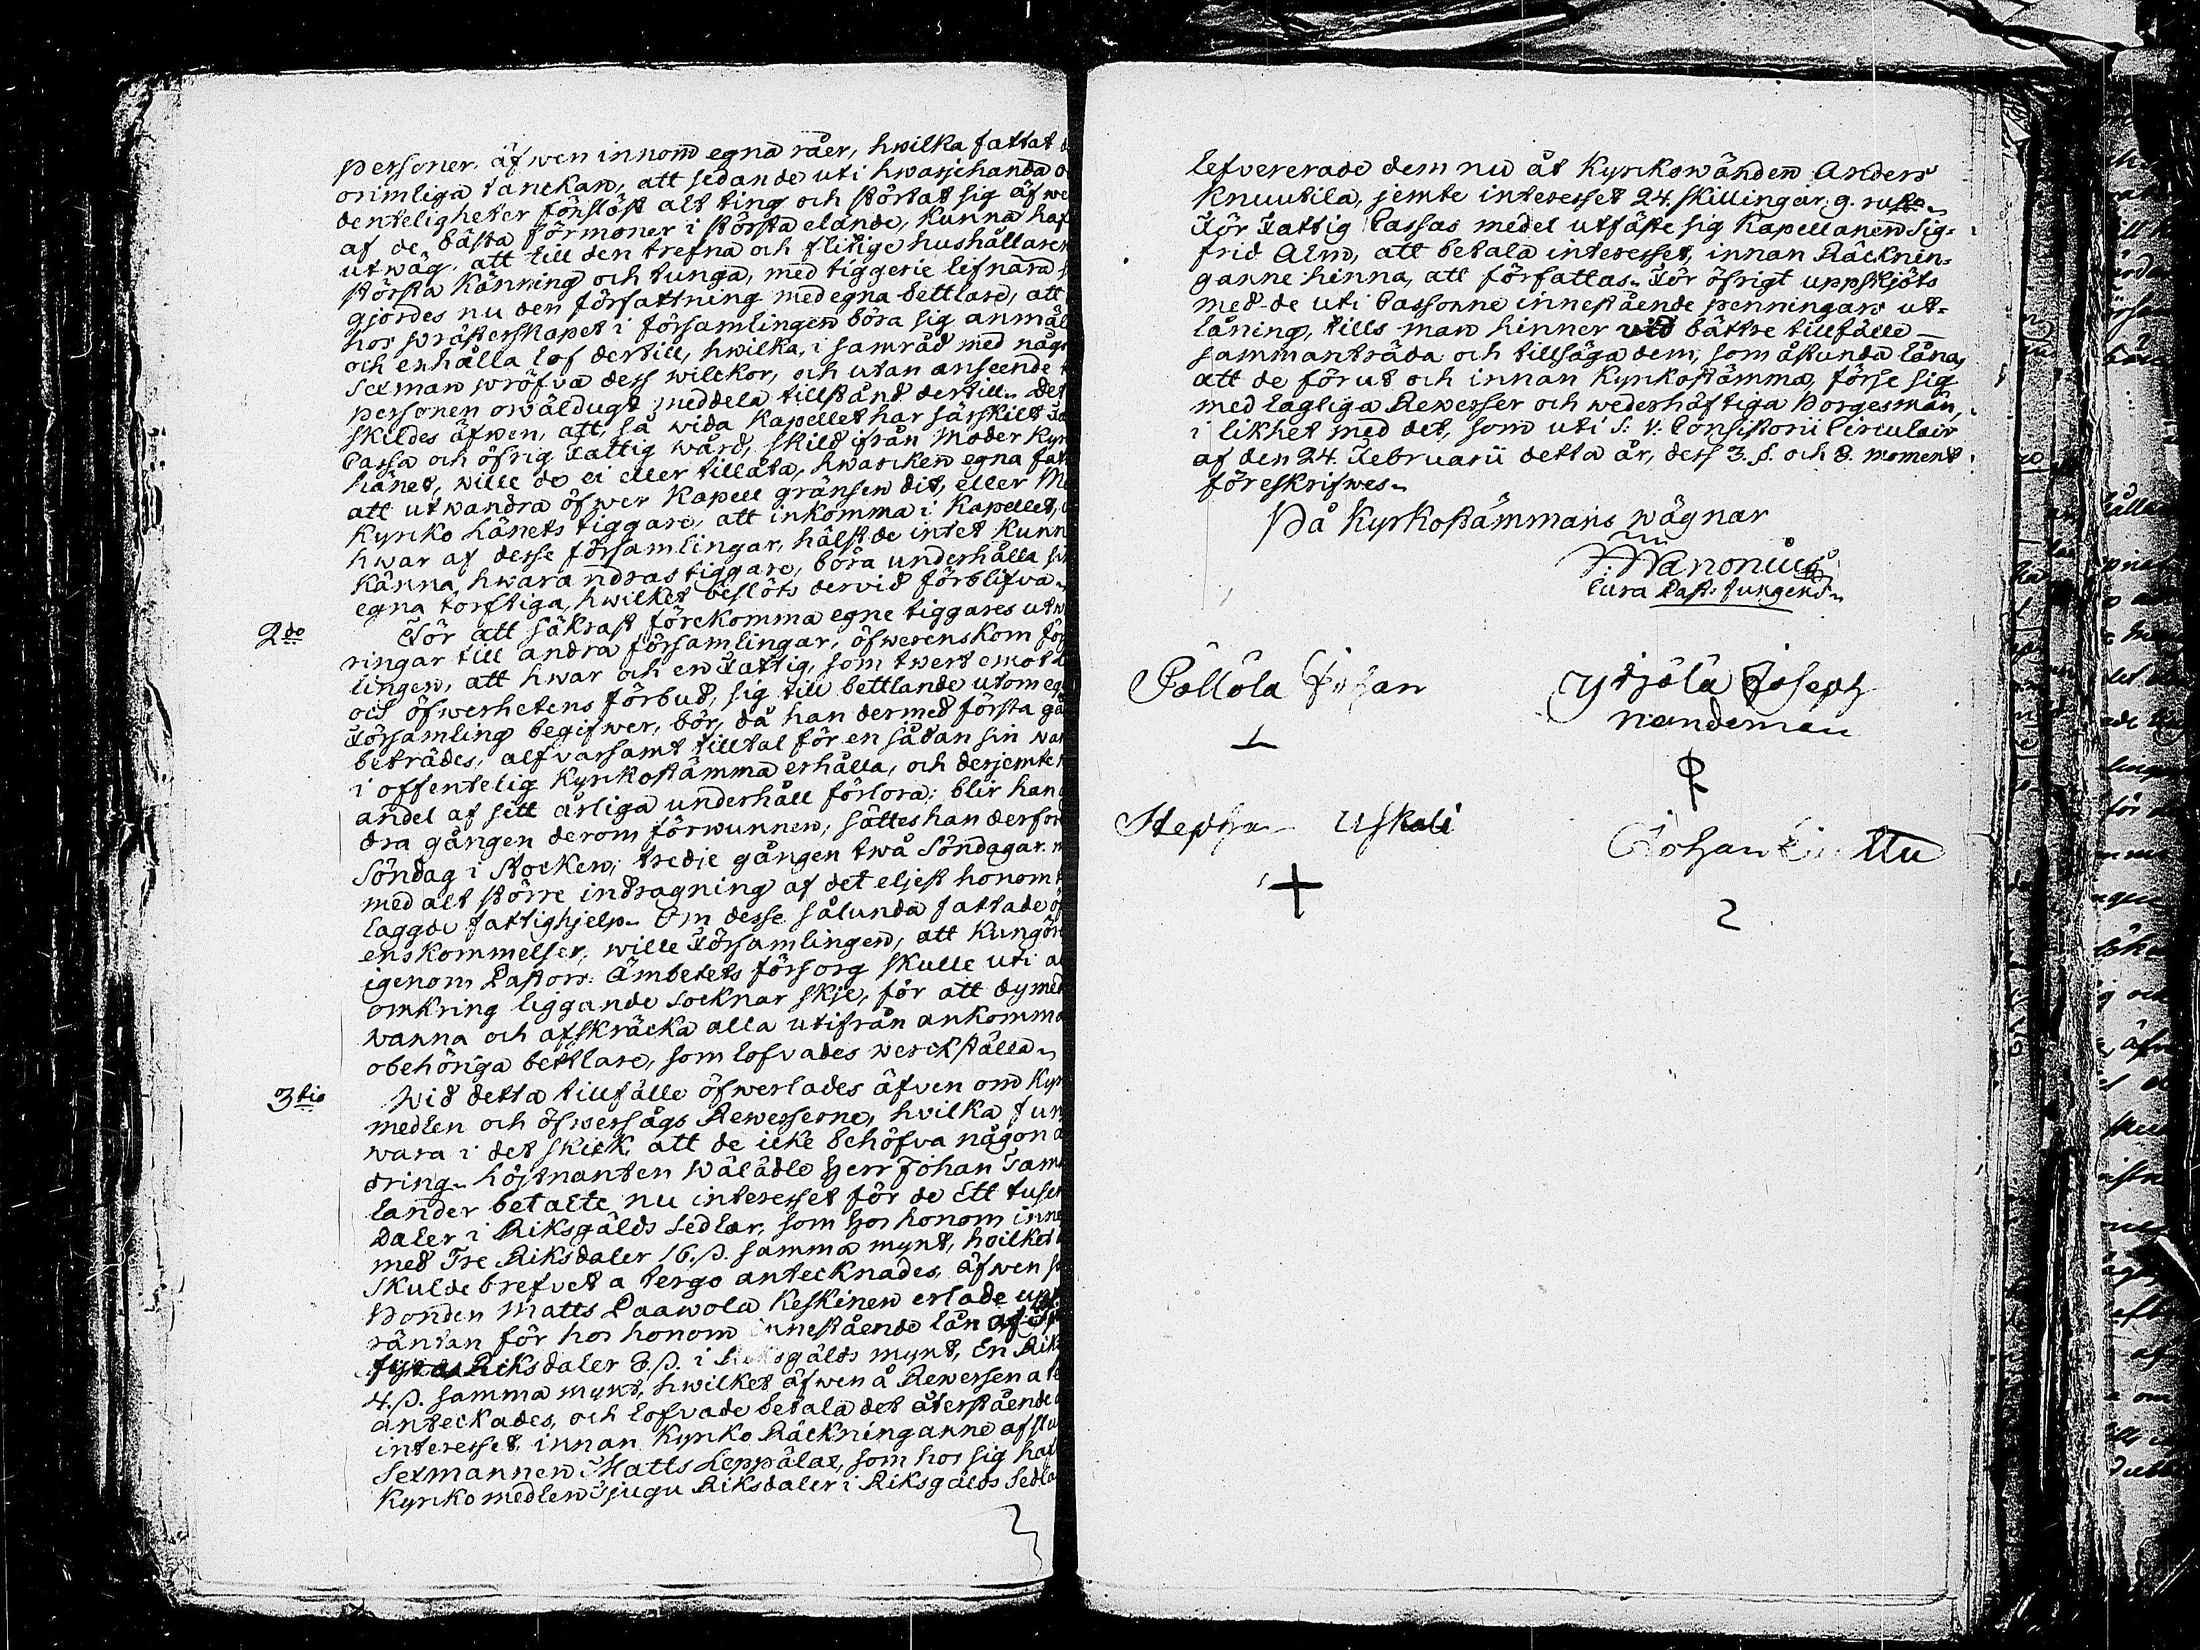 personer, äfwen innom egna råer, hwilka fattat
orimliga tanckan, att sedan de uti hwarjehanda
denteligheter förslöst alt ting och störtat sig äfwe
af de bästa förmoner i största elände, kunna haf
utwäg, att till den trefna och flitige hushållaren
största känning och tunga, med tiggerie lifnära
gjordes nu den författning med egna bettlare, att
hos prästerskapet i församlingen böra sig anmäl
och erhålla lof dertill, hwilka, i samråd med någ
Sexman pröfva dess wilckor, och utan anseende
personen owäldugt meddela tillstånd dertill. Det
skildes äfwen, att, så wida Kapellet har särskilt
Cassa och öfrig Fattig wård, skild ifrån Moder Kyr
länet, wille de ei eller tillåta, hwarcken egna fat
att utwandra öfwer Kapell gränsen dit, eller Mo
Kyrko Länets tiggare, att inkomma i Kapellet,
hwar af desse församlingar, hälst de intet kunn
känna hwarandras tiggare, böra underhålla si
egna torftiga, hwilket beslöts dervid förblifva.
2do För att säkrast förekomma egne tiggares utw
ringar till andra församlingar, öfwerenskom för
lingen, att hwar och en Fattig, som twert emot
och öfwerhetens förbud, sig till bettlande utom eg
Församling begifwer, bör, då han dermed första gå
beträdes, alfvarsamt tilltal för en sådan sin
i offentelig Kyrkostämma erhålla, och derjemte
andel af sitt årliga underhåll förlora; blir han
dra gången derom förwunnen, sättes han derför
Söndag i Stocken, tredje gången twå Söndagar
med alt större indragning af det eljest honom
laggde fattighjelp. Om desse sålunda fattade öf
enskommelser, wille Församlingen, att Kungör
igenom Pastors Ämbetets försorg skulle uti
omkring liggande Socknar skje, för att dymed
warna och afskräcka alla utifrån ankomma
obehöriga bettlare, som lofvades werckställa.
3tio Wid detta tillfälle öfwerlades äfven om Kyr
medlen och öfwersågs Rewerserne, hvilka fun
wara i det skick, att de icke behöfva någon
dring. Löjtnanten Wälädle Herr Johan Tam
lander betalte nu interesset för de Ett tusen
Daler i Riksgälds Sedlar, som hos honom inne
med Tre Riksdaler 16.s. samma mynt, hvilket
Skuldebrefvet a tergo antecknades, äfwen så
Bonden Matts Paawola Keskinen erlade upp
räntan för hos honom innestående lån af
Riksdaler 3.s. i Riksgälds mynt, En Riks
4.s. samma mynt, hwilket äfwen å Rewersen a te
anteckades, och lofvade betala det återstående
interesset, innan Kyrko Räckninganne afslu
Sexmannen Matts Leppälax, som hos sig haf
Kyrkomedlen Tjugu Riksdaler i Riksgälds Sedla
lefvererade dem nu åt Kyrkowärden Anders
Knuutila, jemte interesset 24. skillingar 9. rst.
För Fattig Cassas medel utfäste sig Kapellanen Sig-
frid Alm, att betala interesset, innan Räcknin-
ganne hinna, att författas. För öfrigt uppskjöts
med de uti Cassorne innestående penningars ut-
låning, tills man hinner wid bättre tillfälle
sammanträda och tillsäga dem, som åstunda låna,
att de förut och innan Kyrkostämma, förse sig
med lagliga Rewerser och wederhäftiga Borgesmän,
i likhet med det, som uti S: V: Consistorii Circulair
af den 24. Februarii detta år, dess 3. §. och 8. moment
föreskrifwes.
På Kyrkostämmans wägnar
Wänonius
Cura Past: fungens.
Pällölä Johan
Yrjölä Joseph
nämdeman
Stephan Uskali
Johan
2